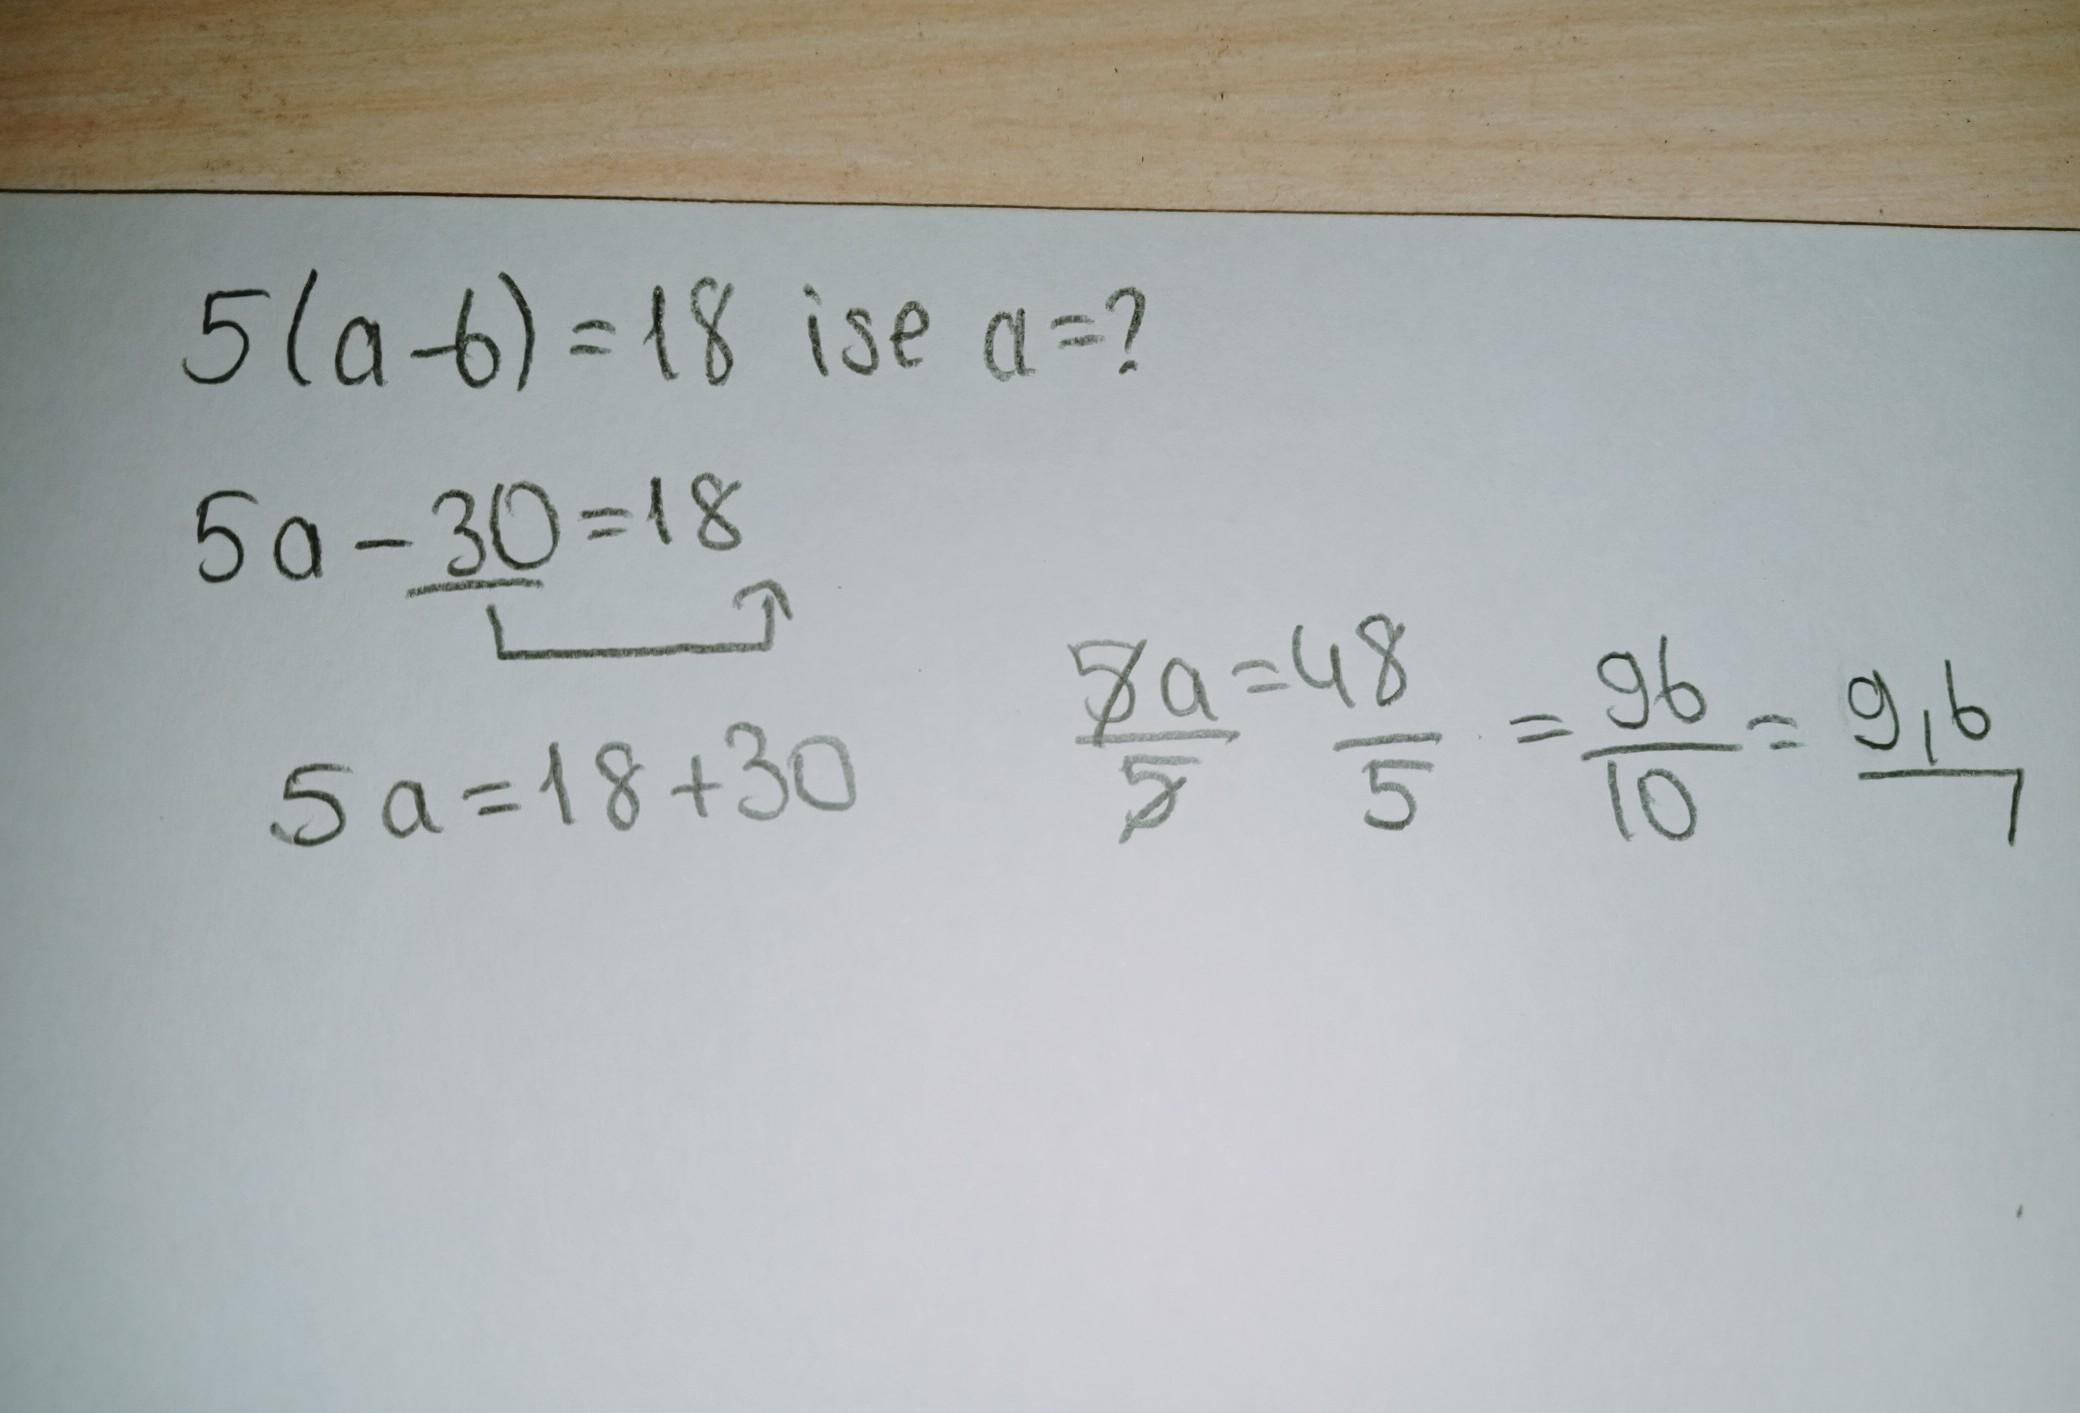 5(a-6)=18 ise a=?
5a-30=18
5a=18+30
5a/5=48/5=96/10=9,6